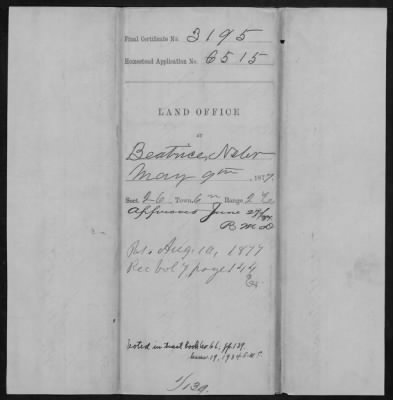 Final Certificate No. 3195
Homestead Application No. 6515
LAND OFFICE
AT
Beatrice, Nebr
May 9th, 1877.
Sect. 26 Town. 6 n Range 2 E
Approved June 27/77
Pat. Aug. 10, 1877
Rec vol 7 page 144
Posted in tract book 66, pp. 139.
19, 1934
1/139.